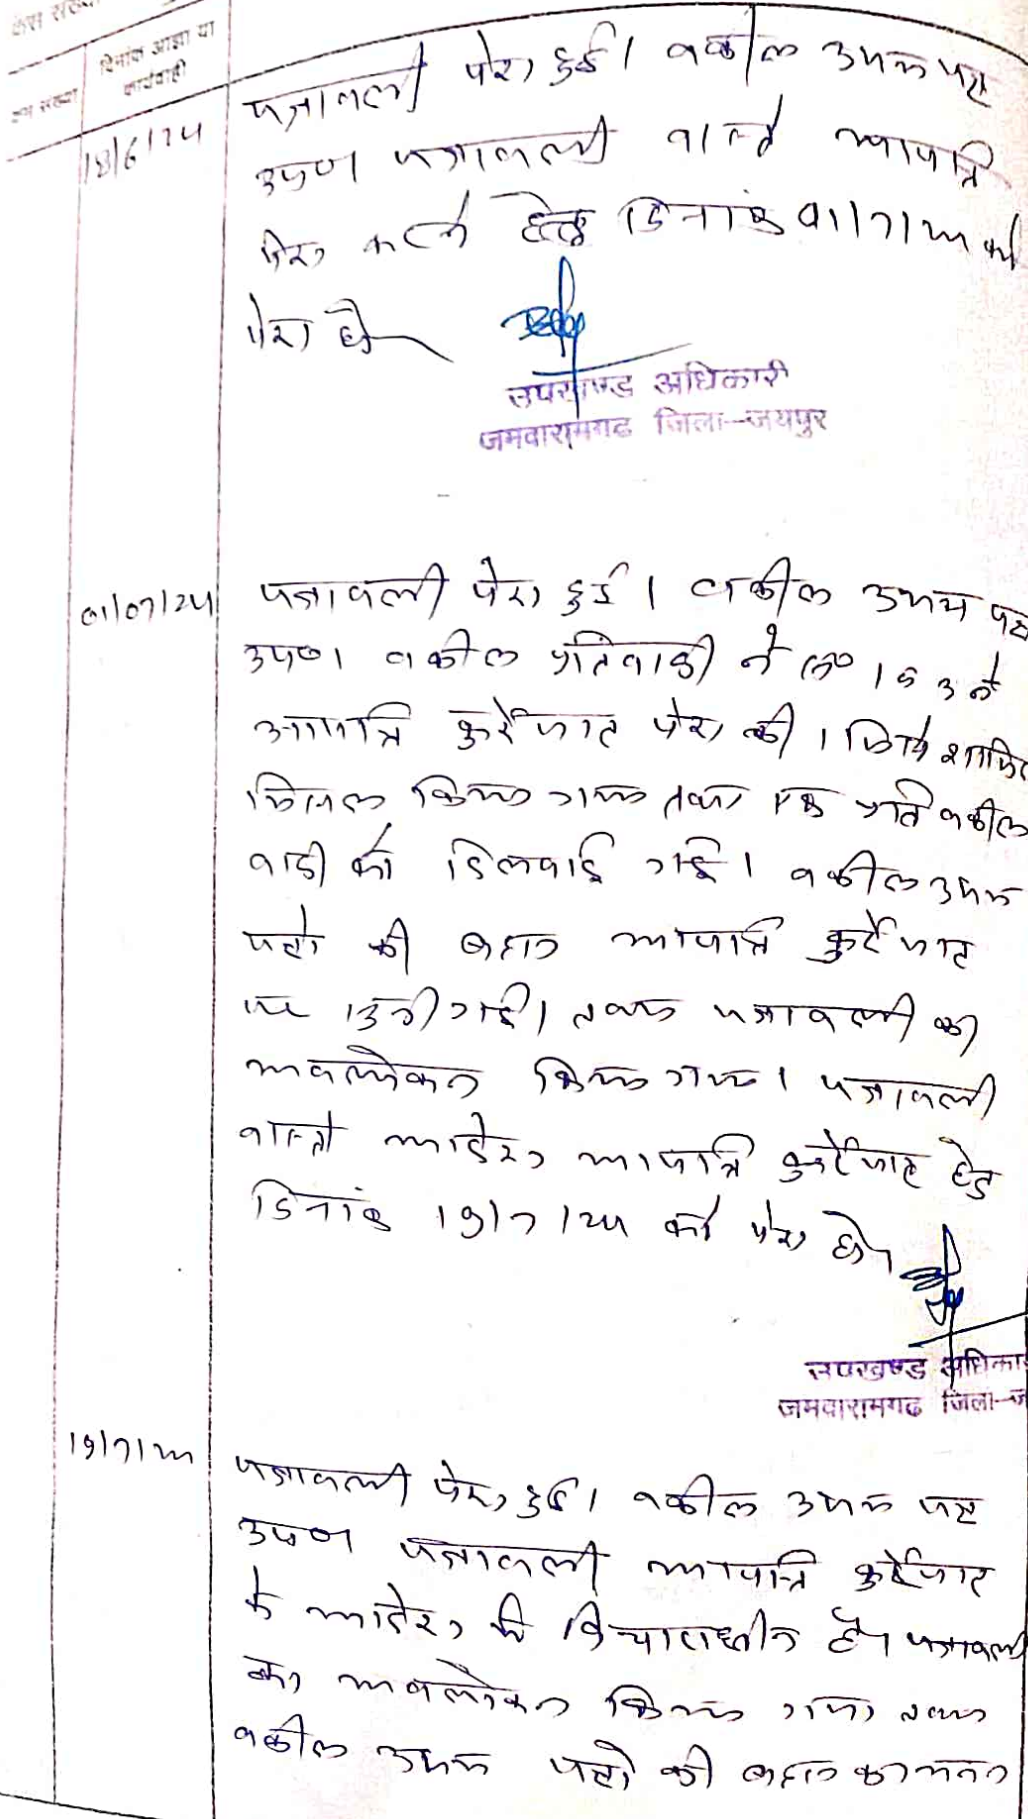 केस संख्या
क्रम संख्या
दिनांक आज्ञा या
कार्यवाही
18/6/24
पत्रावली पेश हुई। वकील उभय पक्ष
उप० पत्रावली वास्ते आपत्ति
पेश करने हेतु दिनांक 01/7/24 को
पेश हो
उपखण्ड अधिकारी
जमवारामगढ जिला-जयपुर
01/07/24
पत्रावली पेश हुई। वकील उभय पक्ष
उप०। वकील प्रतिवादी ने 1 3 ने
आपत्ति कुर्रेजात पेश की। जिसे शामिल
मिसल किया गया तथा एक प्रति वकील
वादी को दिलवाई गई। वकील उभय
पक्षो की बहस आपत्ति कुर्रेजात
पर सुनी गई। तथा पत्रावली का
अवलोकन किया गया। पत्रावली
वास्ते आदेश आपत्ति कुर्रेजात हेतु
दिनांक 19/7/24 को पेश हो
उपखण्ड अधिका
जमवारामगढ जिला-ज
19/7/24
पत्रावली पेश हुई। वकील उभय पक्ष
उप० पत्रावली आपत्ति कुर्रेजात
के आदेश में विचाराधीन है। पत्रावली
का अवलोकन किया गया तथा
वकील उभय पक्षो की बहस का मनन